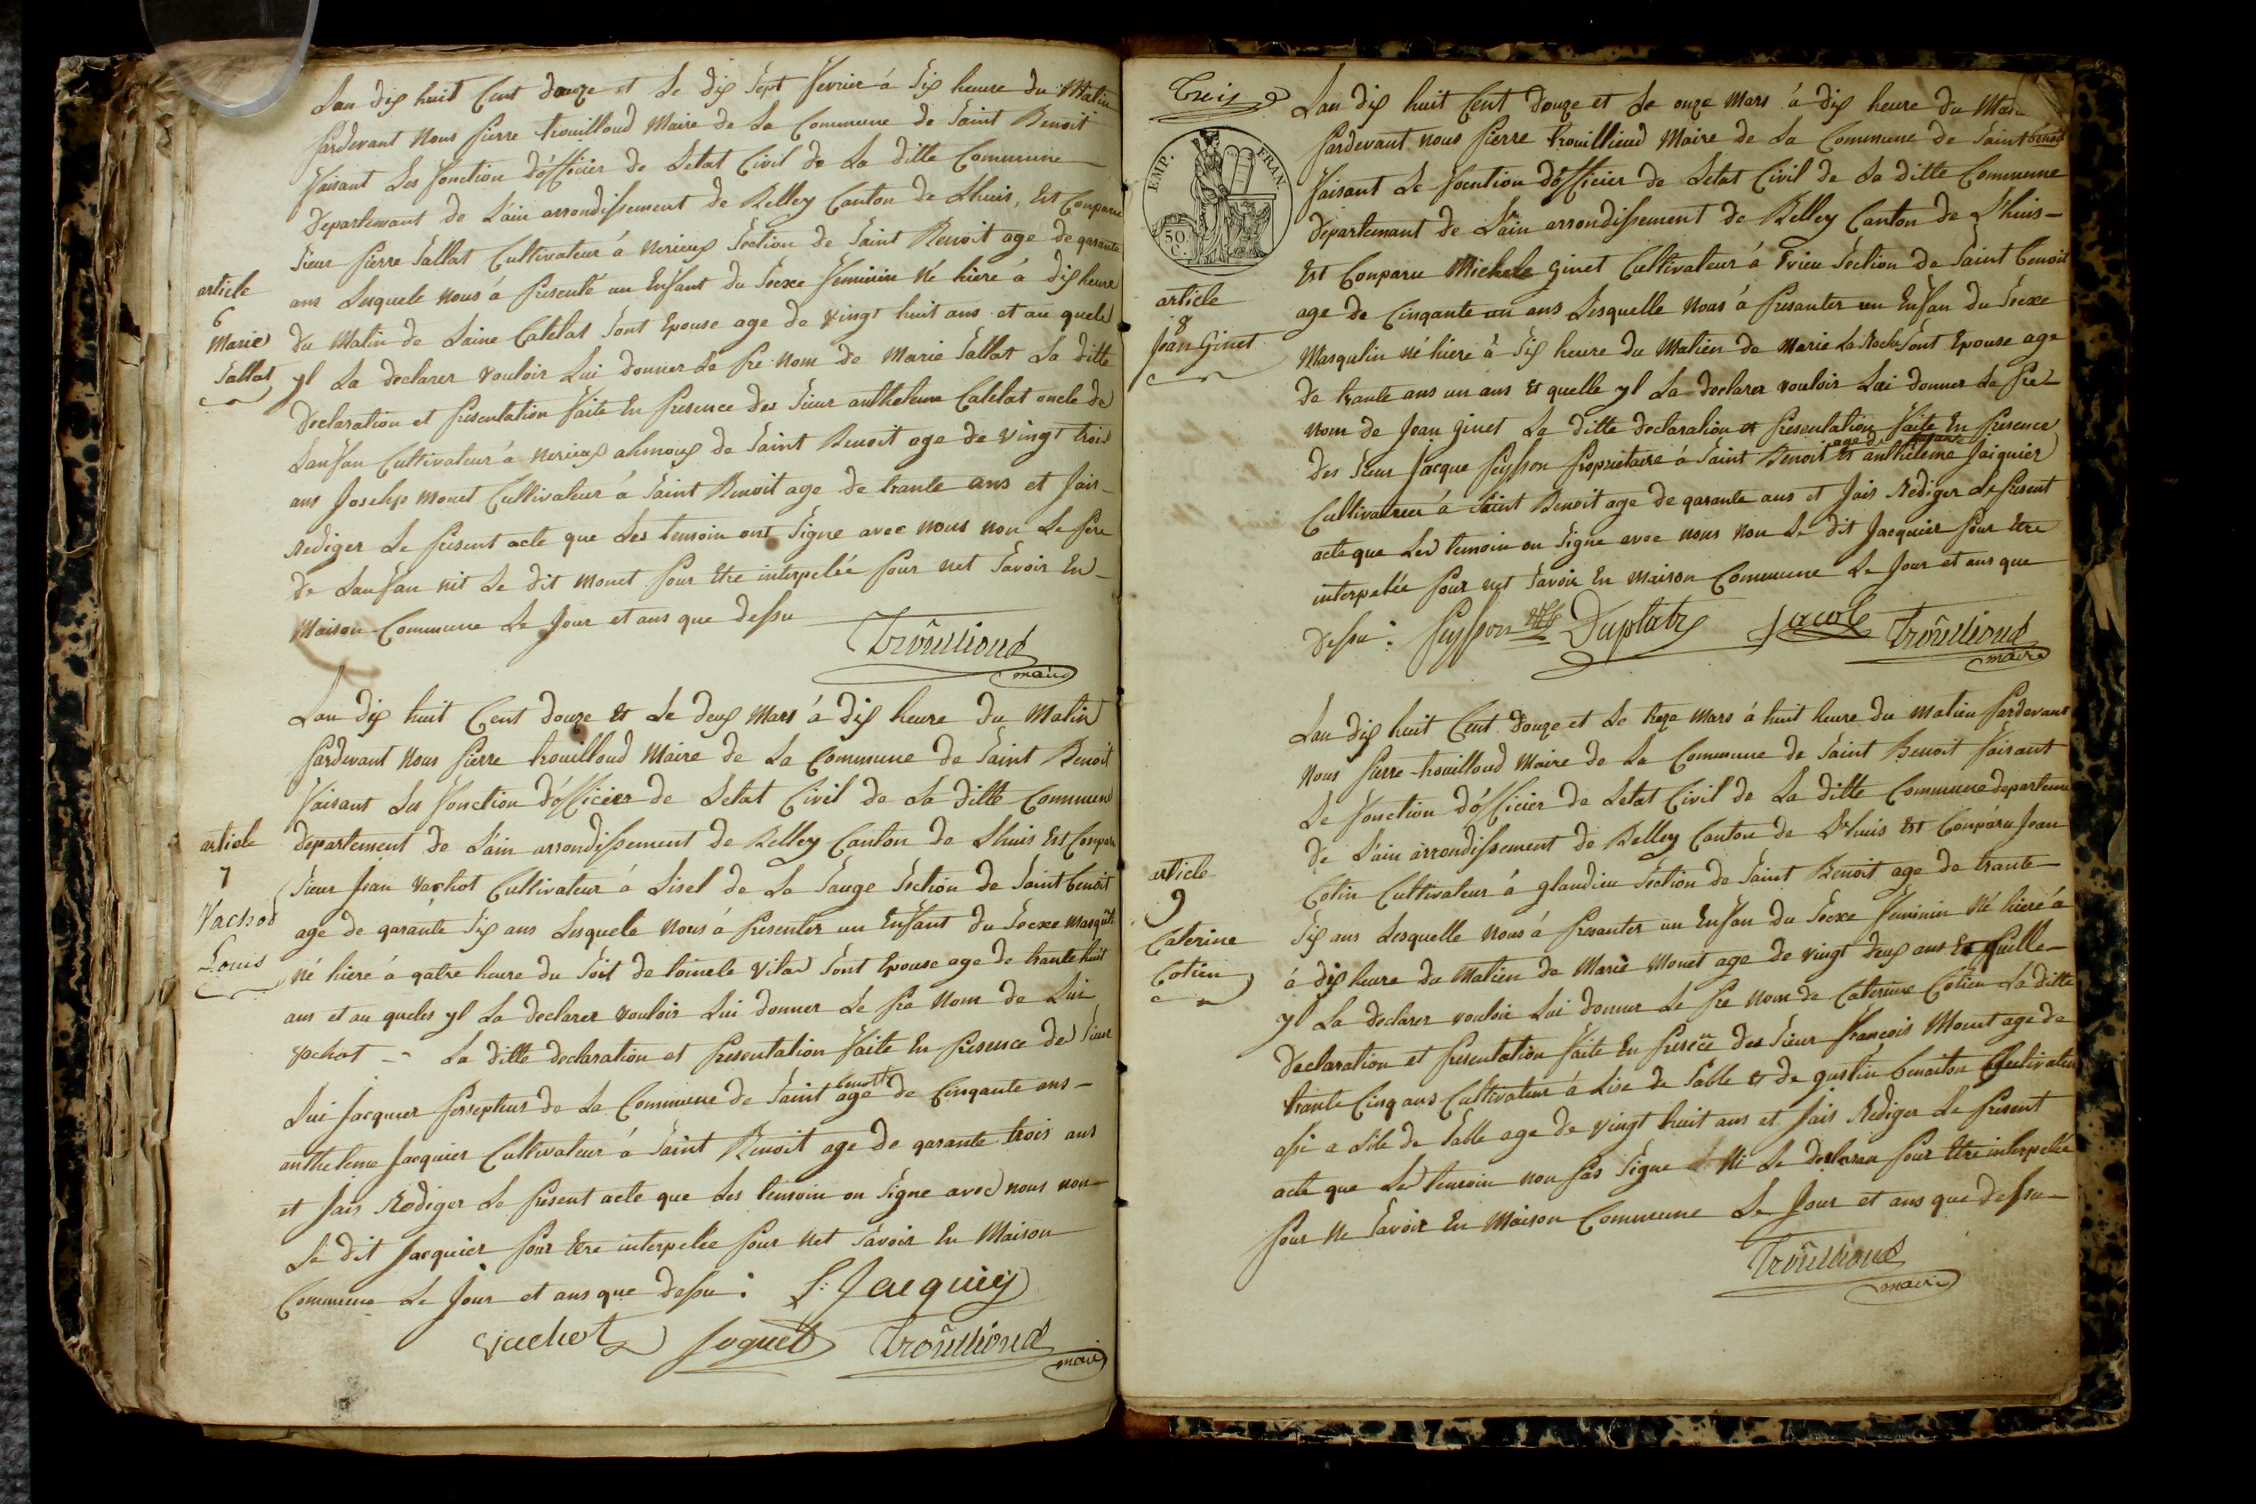 Lan dix huit Cent douze et Le dix Sept fevrier à Six heure du Matin
pardevant Nous pierre trouilloud Maire de La Commune de Saint Benoit
faisant Les fonction d'officier de Letat Civil de La ditte Commune
Departemant de L'ain arrondissement de Belley Canton de Lhuis, Est Conparu
Sieur pierre Sallat Cultivateur à nerieux Section de Saint Benoit age de garante
article
6
Marie
Sallat
ans Lesquele nous à presenté un Enfant du Seexe feminin né hiere à dix heure
du Matin de Laine Catelat Sont Epouse age de vingt huit ans et au quele
yl La declarer vouloir Lui donner Le pre nom de Marie Sallat La ditte
declaration et presentation faite En presence des Sieur antheleme Catelat oncle de
Lanfan Cultivateur à nerieux de Saint Benoit age de vingt trois
ans Joselys monet Cultivateur à Saint Benoit age de trante ans et fais
Rediger Le present acte que Les temoin ont Signe avec nous non Le pere
de Lanfan nit Le dit monet pour Etre interpelée pour net Savoir En
Maison Commune Le Jour et ans que dessu
Troûilioud
maire
Lan dix huit Cent douze Et Le deux Mars à dix heure du Matin
pardevant Nous pierre trouilloud Maire de La Commune de Saint Benoit
faisant Les fonction d'officier de Letat Civil de La ditte Commune
article
7
Vachod
Louis
departement de L'ain arrondissement de Belley Canton de Lhuis Est Conparu
Sieur Jean Vachot Cultivateur à Lisel de La Sauge Section de Saint benoit
age de garante Six ans Lesquele nous à presenter un Enfant du Seexe masqulin
né hiere à qatre heure du Soit de Vilar Sont Epouse age de trante huit
ans et au queles yl La declarer vouloir Lui donner Le pre nom de Lui
vachot - La ditte declaration et presentation faite En presence de Sieur
Lui Jacquier persepteur de La Commune de Saint benoit age de Cinqante ans
antheleme Jacquier Cultivateur à Saint Benoit age de garante trois ans
et fais Rediger Le present acte que Les temoin on Signe avec nous non
Le dit Jacquier pour Etre interpelée pour net Savoir En Maison
Commune Le Jour et ans que dessu : L: Jacquiey
vachot Joguet Troûilioud
maire
Treize
EMP. FRAN.
50 C.
Lan dix huit Cent douze et Le onze Mars à dix heure du Matin
pardevant nous pierre trouillioud Maire de La Commune de Saint benoit
faisant Le fonction d'officier de Letat Civil de La ditte Commune
departemant de L'ain arrondissement de Belley Canton de L'huis
article
8
Jean Ginet
Est Conparu Michele ginet Cultivateur à Evieu Section de Saint benoit
age de Cinqante un ans Lesquelle nous à presanter un Enfan du Seexe
Masqulin né hiere à Six heure du Matien de Marie La Roche Sont Epouse age
de trante ans un ans Et quelle yl La declarer vouloir Lui donner Le Pre
nom de Jean ginet La ditte declaration et presentation faite En presence
des Sieur Jacque peysson propriétaire à Saint Benoit Et antheleme Jaiquier
Cultivateur à Saint Benoit age de garante ans et fais Rediger Le present
acte que Les temoin on Signe avec nous non Le dit Jacquier pour Etre
interpelée pour net Savoir En Maison Commune Le Jour et ans que
dessu : peysson Duplatre Jacob Troûilioud
maire
Lan dix huit Cent douze et Le treze Mars à huit heure du matien pardevant
Nous pierre trouilloud Maire de La Commune de Saint Benoit faisant
Le fonction d'officier de Letat Civil de La ditte Commune departement
de L'ain arrondissement de Belley Canton de L'huis Est Conparu Jean
article
9
Caterine
Cotien
Cotin Cultivateur à glandieu Section de Saint Benoit age de trante
Six ans Lesquelle nous à presanter un Enfan du Seexe feminin né hiere à
à dix heure du Matien de Marie Monet age de vingt deux ans Et quelle
yl La declarer vouloir Lui donner Le pre nom de Caterine Cotien La ditte
declaration et presentation faite En presece des Sieur francois Mount age de
trante Cinq ans Cultivateur à Lise de Salle et de gustin benaiton Cultivateur
assi a Lile de Salle age de vingt huit ans et fais Rediger Le present
acte que Les temoin non pas Signe Ni Le declaran pour Etre interpelée
pour ne Savoir En Maison Commune Le Jour et ans que dessu
Troûilioud
maire